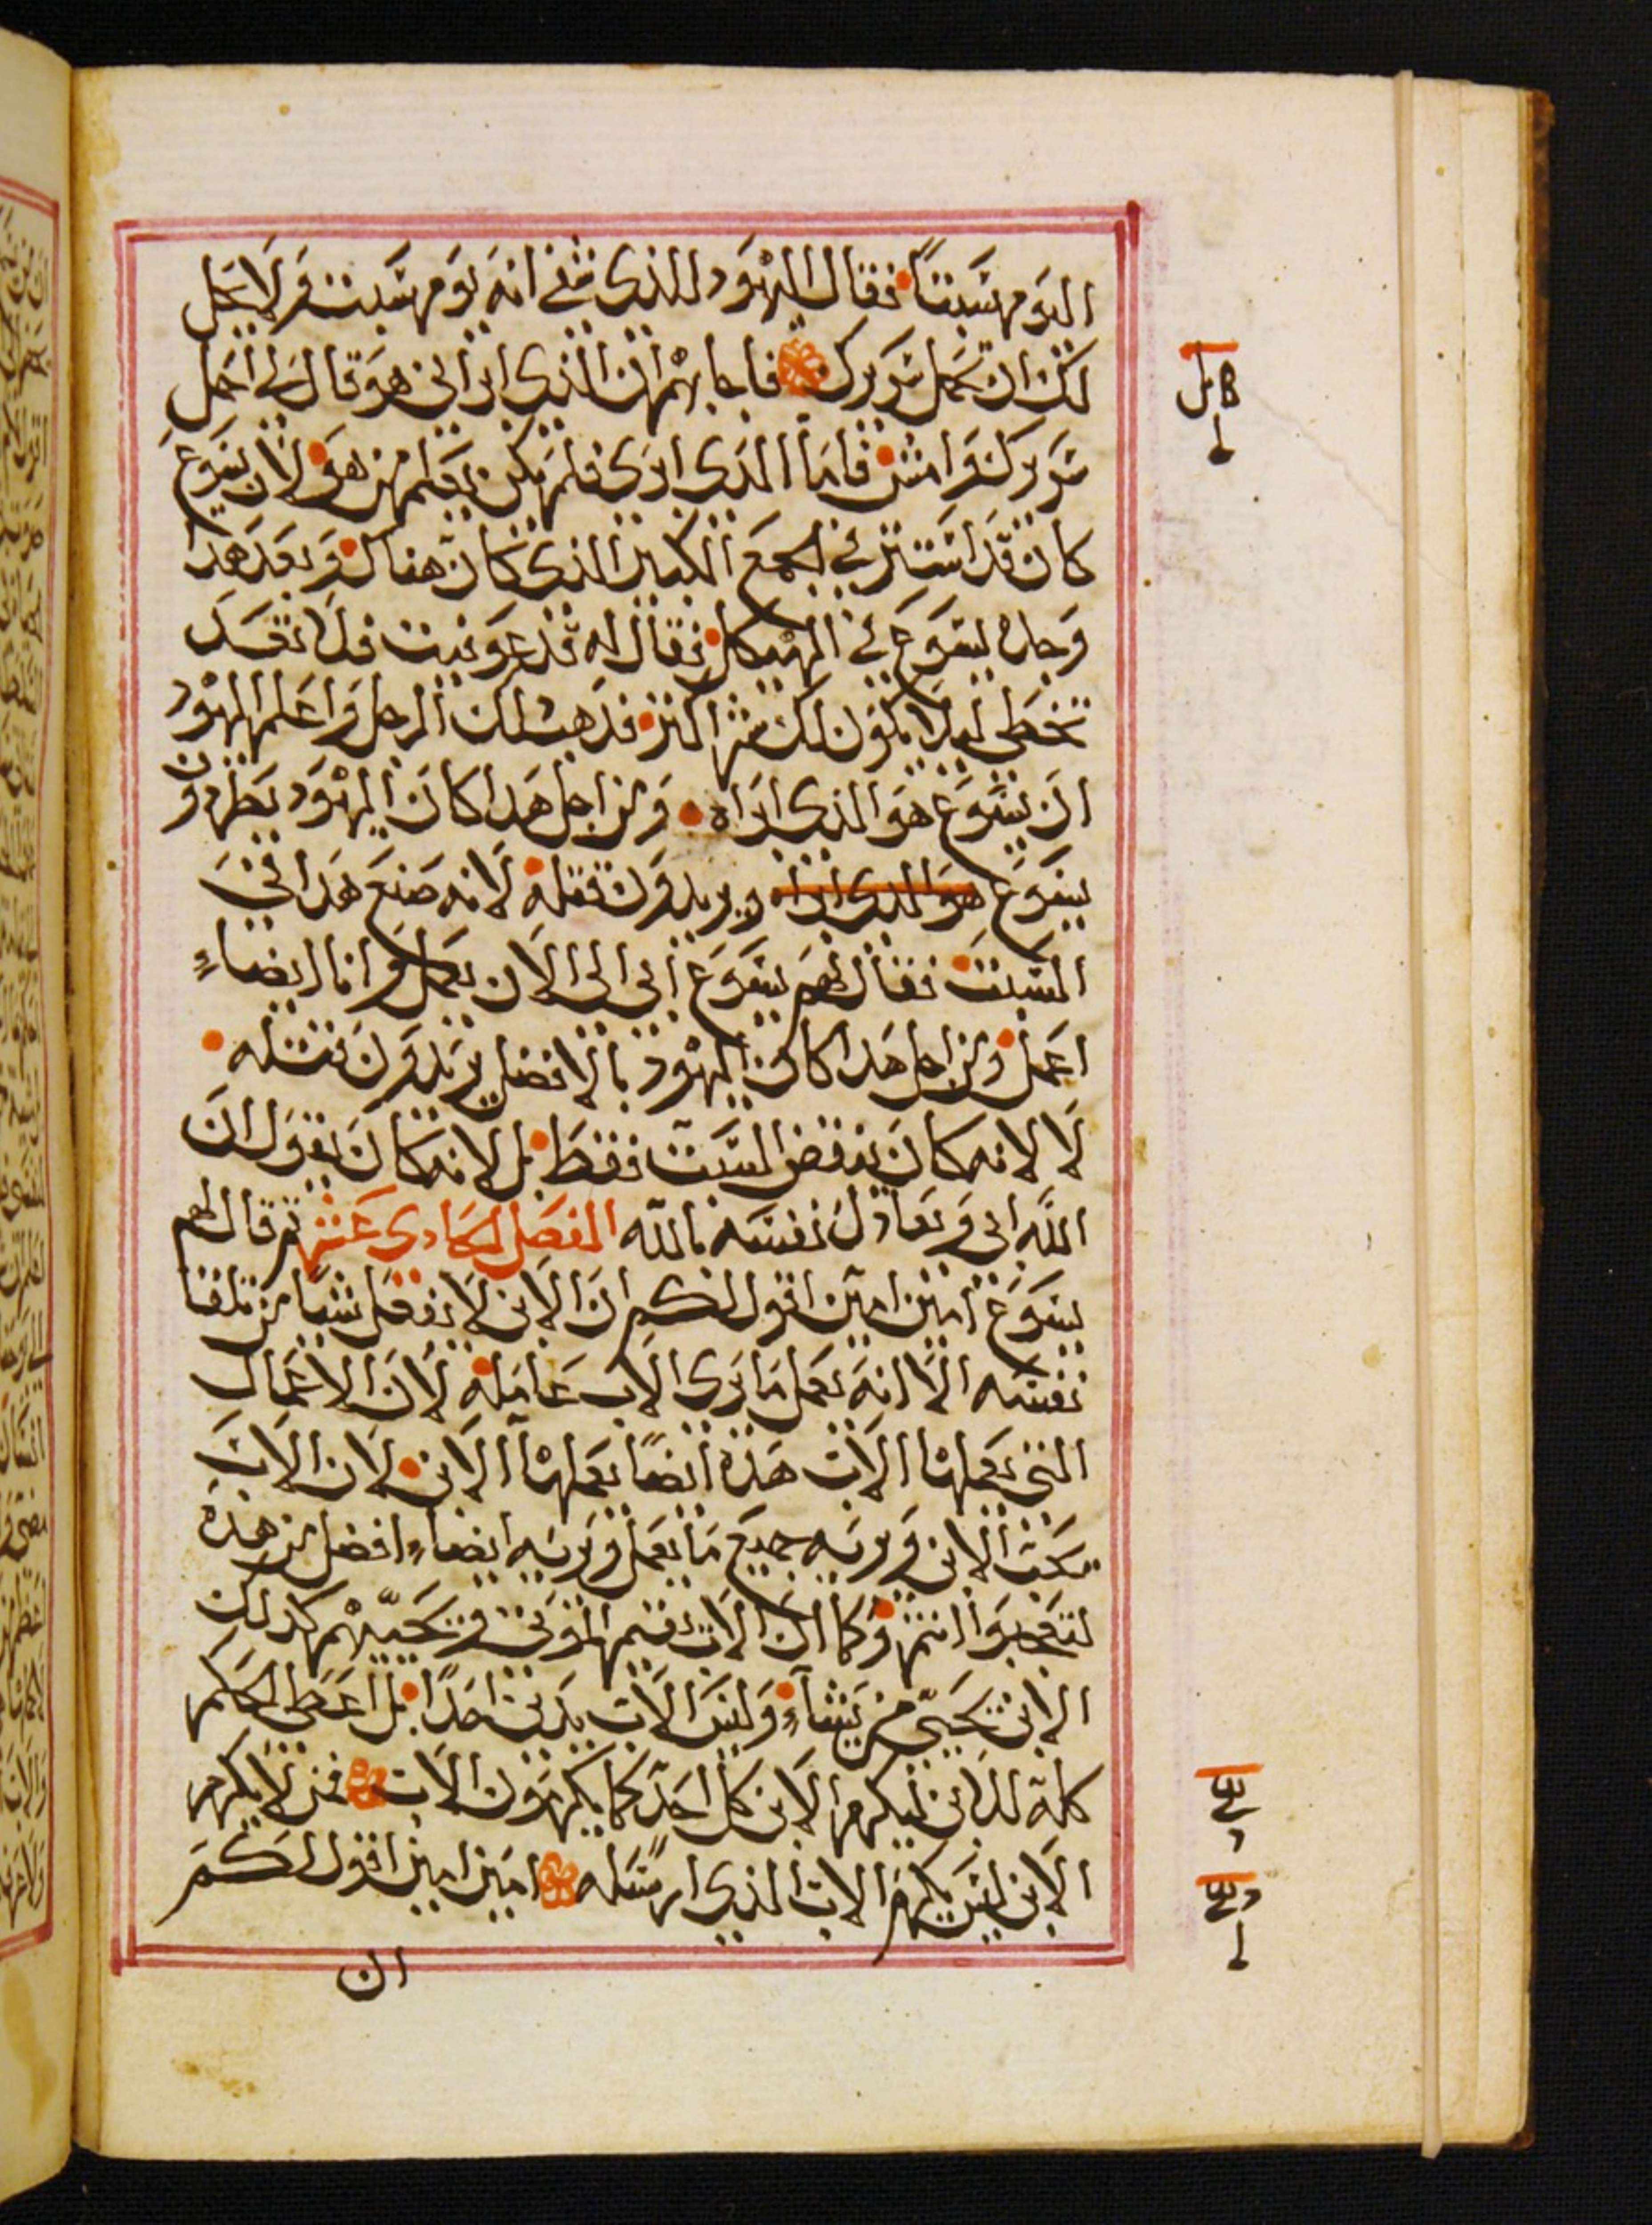 اليوم سبتاً فقال اليهود للذي شفي انه يوم سبت ولا يحل
لك ان تحمل سريرك فاجابهم ان الذي ابراني هو قال لي احمل
سريرك وامش فاما الذي ابري فلم يكن يعلم من هو لان يسوع
كان قد استتر في الجمع الكبير الذي كان هناك وبعد هدا
وجده يسوع في الهيكل فقال له قد عوفيت فلا تعد
تخطي ليلا يكون لك شر اكثر فدهب دلك الرجل واعلم اليهود
ان يسوع هو الذي ابراه ومن اجل هدا كان اليهود يطردون
يسوع هو الدي ابراه ويريدون قتله لانه صنع هدا في
السبت فقال لهم يسوع ابي الى الان يعمل وانا ايضاء
اعمل ومن اجل هدا كان اليهود بالافضل يريدون قتله
لا لانه كان ينقض السبت فقط بل لانه كان يقول ان
الله ابي ويعادل نفسه بالله الفصل الحادي عشر ثم قال لهم
يسوع امين امين اقول لكم ان الابن لا يفعل شيا من تلقا
نفسه الا انه يعمل ما يرى الاب عامله لان الاعمال
التي يعملها الاب هذه ايضاً يعملها الابن لان الاب
يحب الابن ويريه جميع ما يعمل ويريه ايضاء افضل من هذه
لتعجبوا انتم وكما ان الاب يقيم الموتى ويحييهم كدلك
الابن يحيي من يشاء وليس الاب يدين احداً بل اعطى الحكم
كله للابن ليكرم الابن كل احد كما يكرمون الاب فمن لا يكرم
الابن ليس يكرم الاب الذي ارسله امين امين اقول لكم
ان